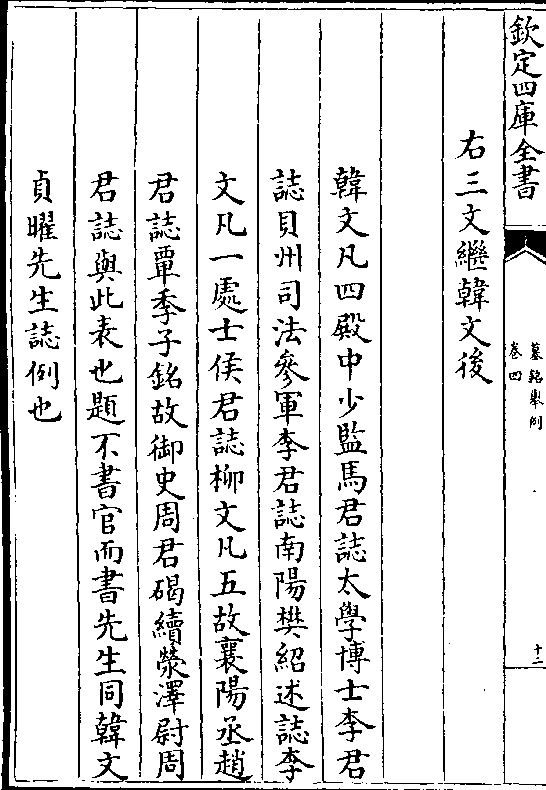 欽定四庫全書
墓銘舉例
卷四
十二
右三文繼韓文後
韓文凡四殿中少監馬君誌太學博士李君
誌貝州司法參軍李君誌南陽樊紹述誌李
文凡一處士侯君誌柳文凡五故襄陽丞趙
君誌覃季子銘故御史周君碣續滎澤尉周
君誌與此表也題不書官而書先生同韓文
貞曜先生誌例也